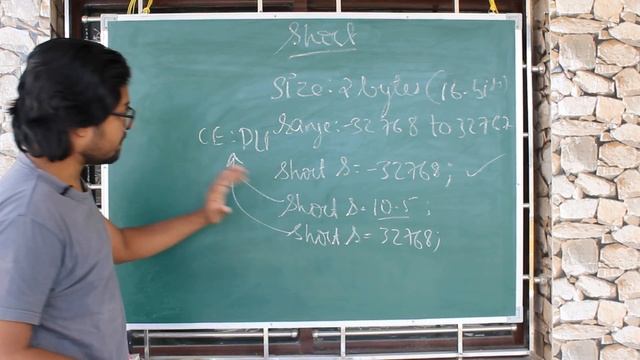 Short
Size: 2 bytes (16-bits)
Range: -32768 to 32767
CE: PLP
short s = -32768; ✓
short s = 10.5;
short s = 32768;